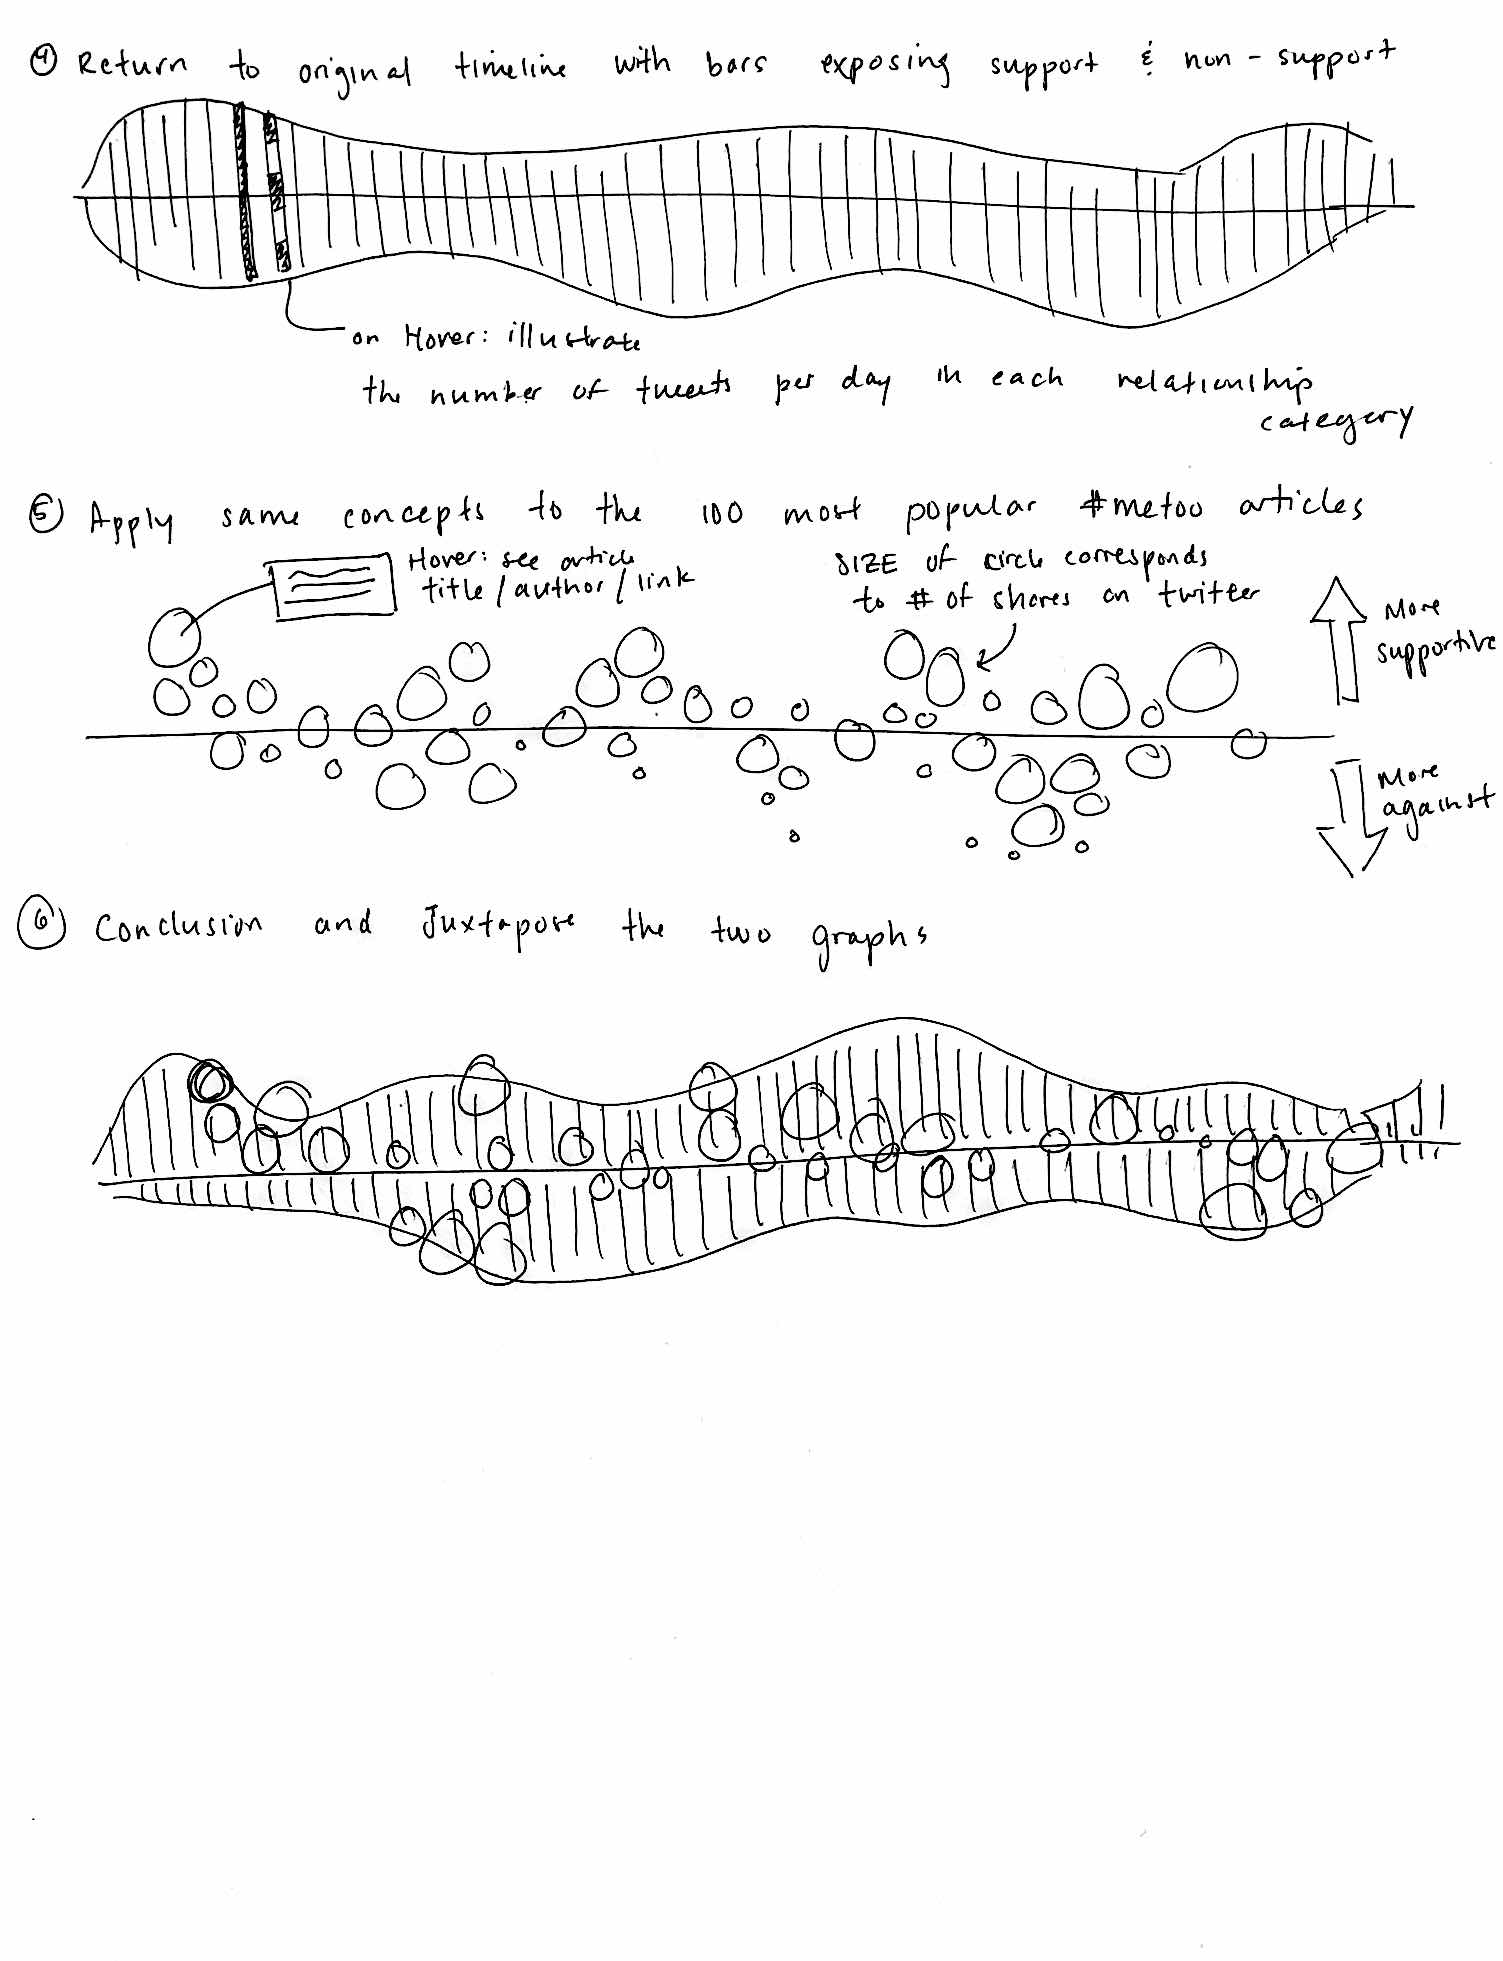 ④ Return to original timeline with bars exposing support & non-support
on Hover: illustrate
the number of tweets per day in each relationship
category
⑤ Apply same concepts to the 100 most popular #metoo articles
Hover: see article
title/author/link
SIZE of circle corresponds
to # of shares on twitter
More
supportive
More
against
⑥ Conclusion and Juxtapose the two graphs